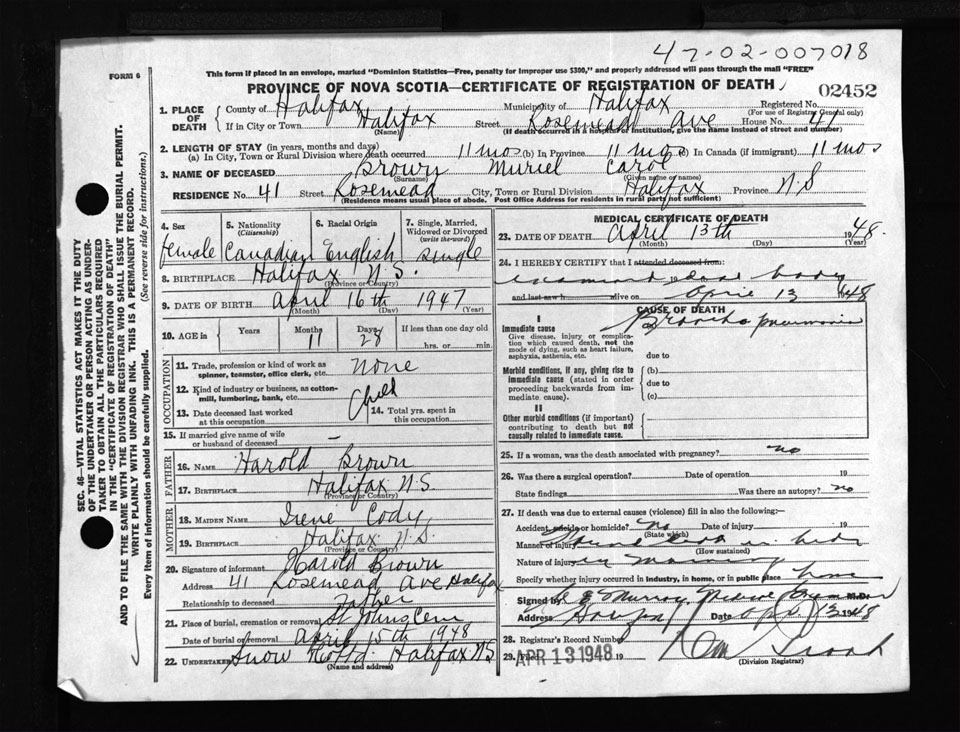 47-02-007018
FORM 6
This form if placed in an envelope, marked "Dominion Statistics—Free, penalty for improper use $300," and properly addressed will pass through the mail "FREE"
PROVINCE OF NOVA SCOTIA—CERTIFICATE OF REGISTRATION OF DEATH
02452
1. PLACE OF DEATH
County of Halifax Municipality of Halifax Registered No.
(For use of Registrar General only)
If in City or Town Halifax Street Rosemead Ave House No. 41
(Name) (If death occurred in a hospital or institution, give the name instead of street and number)
2. LENGTH OF STAY (in years, months and days)
(a) In City, Town or Rural Division where death occurred 11 mos (b) In Province 11 mos (c) In Canada (if immigrant) 11 mos
3. NAME OF DECEASED Brown Muriel Carol
(Surname) (Given name or names)
RESIDENCE No. 41 Street Rosemead City, Town or Rural Division Halifax Province N.S
(Residence means usual place of abode. Post Office Address for residents in rural parts not sufficient)
SEC. 46—VITAL STATISTICS ACT MAKES IT THE DUTY
OF THE UNDERTAKER OR PERSON ACTING AS UNDER-
TAKER TO OBTAIN ALL THE PARTICULARS REQUIRED
IN THE "CERTIFICATE OF REGISTRATION OF DEATH"
AND TO FILE THE SAME WITH THE DIVISION REGISTRAR WHO SHALL ISSUE THE BURIAL PERMIT.
WRITE PLAINLY WITH UNFADING INK. THIS IS A PERMANENT RECORD.
Every item of information should be carefully supplied. (See reverse side for instructions.)
4. Sex 5. Nationality 6. Racial Origin 7. Single, Married,
(Citizenship) Widowed or Divorced
(write the word)
female Canadian English single
8. BIRTHPLACE Halifax N.S.
(Province or Country)
9. DATE OF BIRTH April 16th 1947
(Month) (Day) (Year)
10. AGE in Years Months Days If less than one day old
11 28 hrs. or min.
OCCUPATION
11. Trade, profession or kind of work as
spinner, teamster, office clerk, etc. None
12. Kind of industry or business, as cotton-
mill, lumbering, bank, etc. Child
13. Date deceased last worked
at this occupation
14. Total yrs. spent in
this occupation
15. If married give name of wife
or husband of deceased —
FATHER
16. NAME Harold Brown
17. BIRTHPLACE Halifax N.S.
(Province or Country)
MOTHER
18. MAIDEN NAME Irene Cody
19. BIRTHPLACE Halifax N.S.
(Province or Country)
20. Signature of informant Harold Brown
Address 41 Rosemead Ave Halifax
Relationship to deceased Father
21. Place of burial, cremation or removal St Johns Cem
Date of burial or removal April 15th 1948
22. UNDERTAKER Snow Halifax N.S
(Name and address)
MEDICAL CERTIFICATE OF DEATH
23. DATE OF DEATH April 13th 1948.
(Month) (Day) (Year)
24. I HEREBY CERTIFY that I attended deceased from:
examined 19 dead body
and last saw h alive on April 13 1948
CAUSE OF DEATH
I
Immediate cause Broncho pneumonia
Give disease, injury or complica-
tion which caused death, not the
mode of dying, such as heart failure,
asphyxia, asthenia, etc.
due to
Morbid conditions, if any, giving rise to
immediate cause (stated in order
proceeding backwards from im-
mediate cause).
(b)
due to
(c)
II
Other morbid conditions (if important)
contributing to death but not
causally related to immediate cause.
25. If a woman, was the death associated with pregnancy? no
26. Was there a surgical operation? Date of operation 19
State findings Was there an autopsy? no
27. If death was due to external causes (violence) fill in also the following:
Accident, suicide or homicide? No Date of injury 19
(State which)
Manner of injury Found dead in bed
(How sustained)
Nature of injury in morning
Specify whether injury occurred in industry, in home, or in public place home
Signed by Murray M.D.
Address Date Apr 13 1948
28. Registrar's Record Number
29. APR 13 1948 19
(Division Registrar)